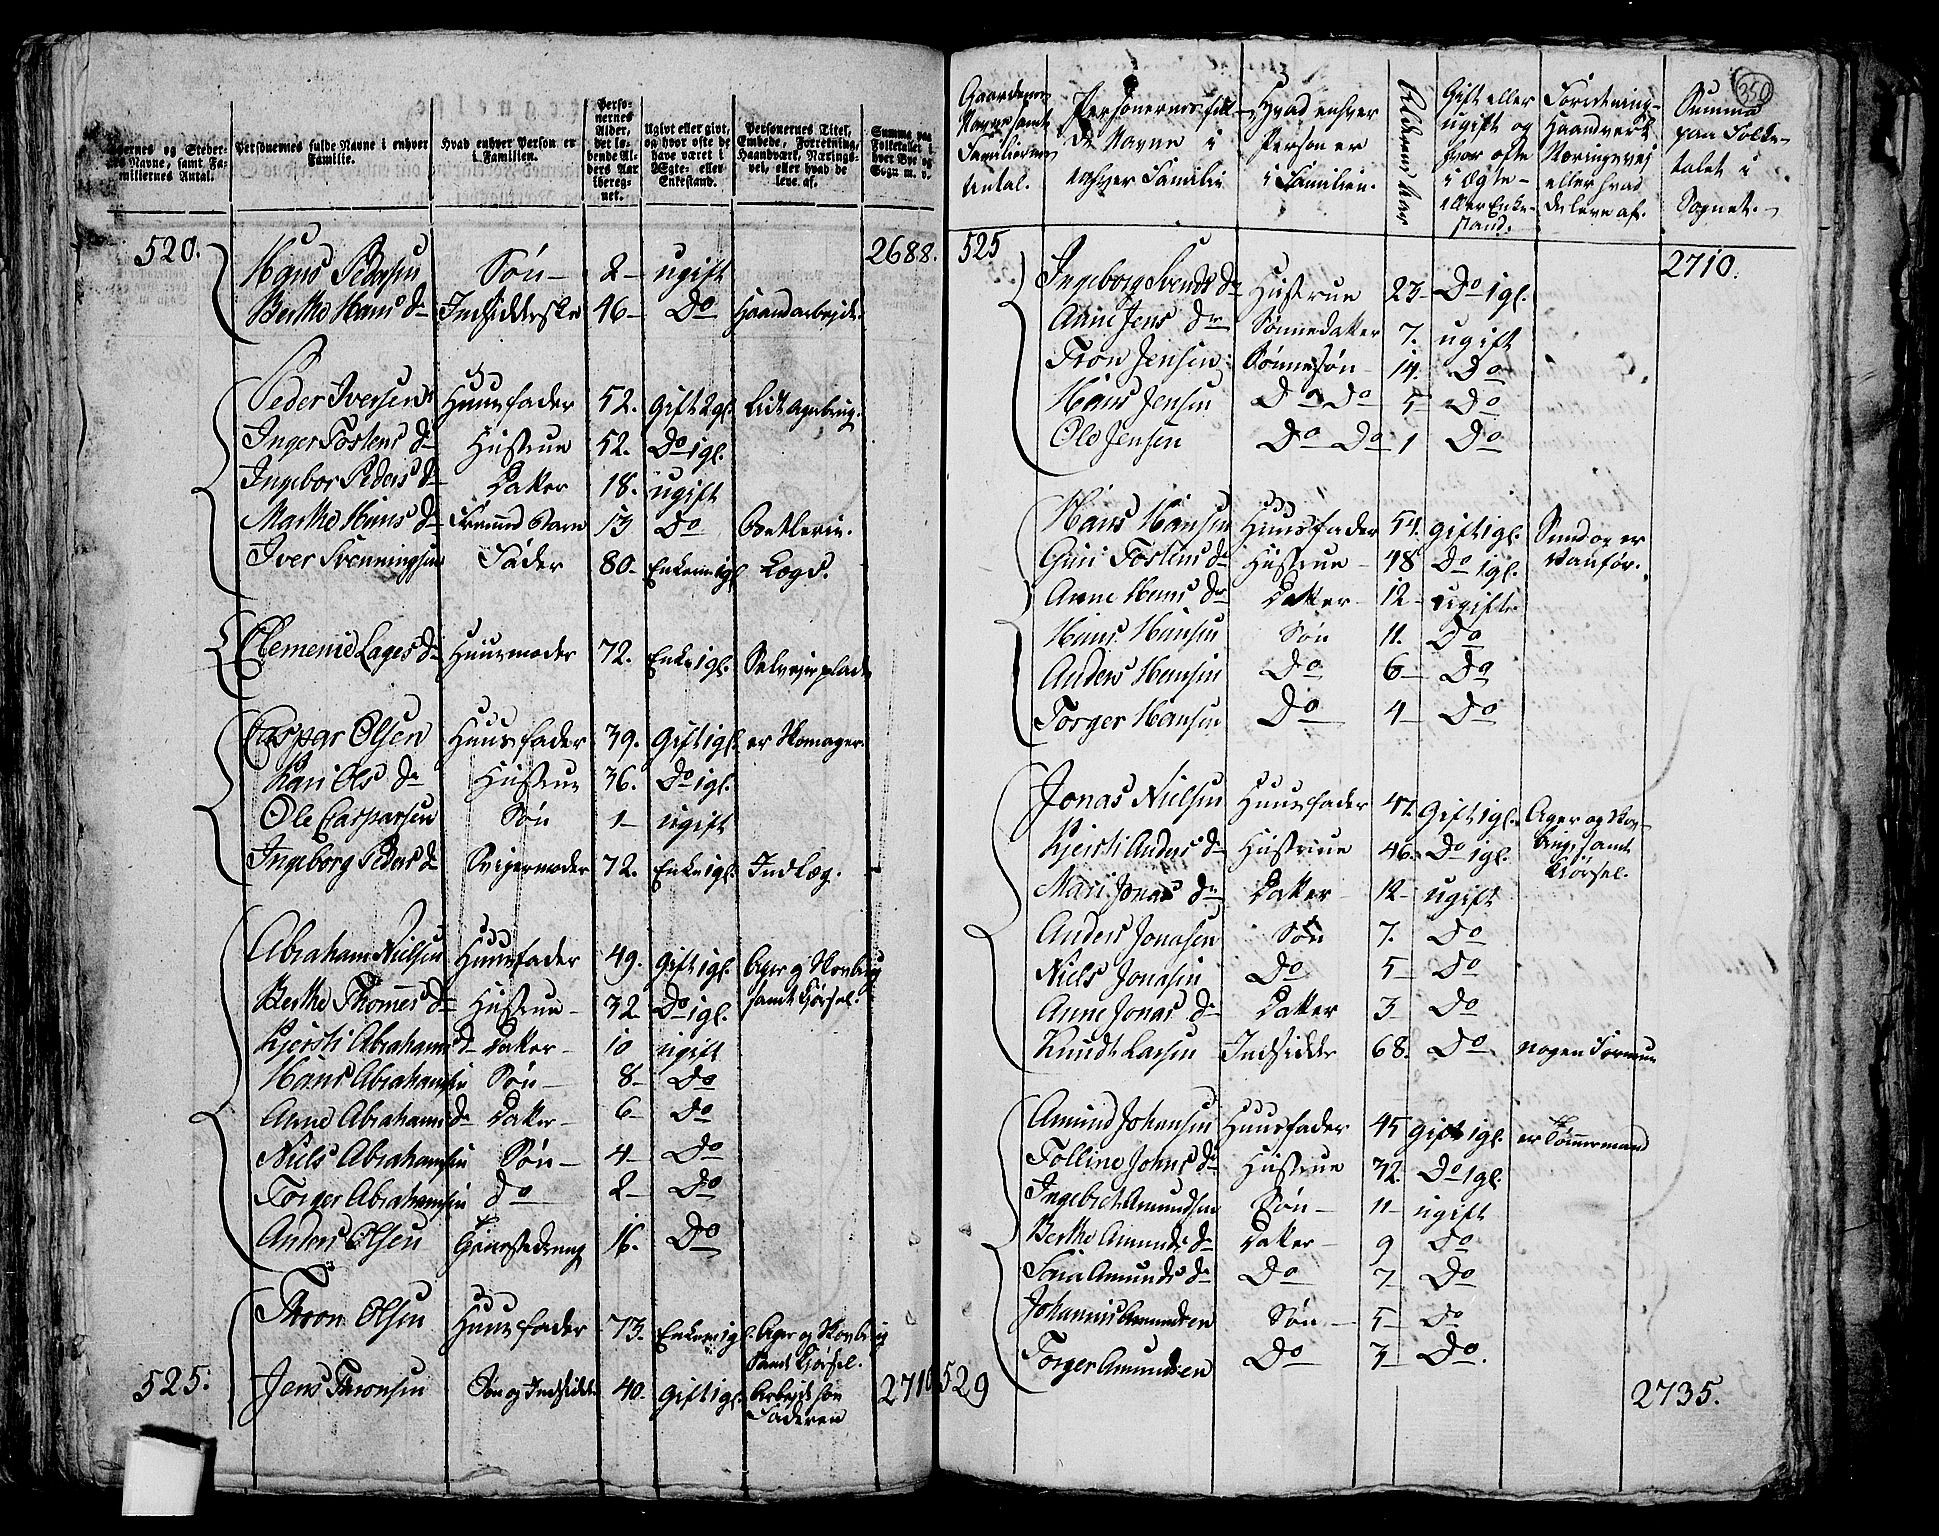 Gaardernes og Stedernes Navne, samt Familiernes Antal.
Personernes fulde Navne i enhver Familie.
Hvad enhver Person er i Familien.
Personernes Alder, det løbende Alders Aar iberegnet.
Ugivt eller givt, og hvor ofte de have været i Ægte- eller Enkestand.
Personernes Titel, Embede, Forretning, Haandværk, Næringsvei, eller hvad de leve af.
Summa paa Folketallet i hver Bye og Sogn m. v.
520. Hans Pedersen Søn 2 ugift 2688.
Berthe Hans Dr Indsidderske 46 Do Haandarbejde.
Peder Iversen Huusfader 52. Gift 2 gl. Lidt Agerbrug.
Inger Tostens Dr Hustrue 52. Do 1 gl.
Ingebor Peders Dr Datter 18. ugift
Marthe Hans Dr Fremmed Barn 13 Do Betlerin.
Iver Svenningsen Fader 80 Enkem 1 gl. Lægd.
Clemenie Lages Dr Huusmoder 72. Enke 1 gl. Selvejerplads
Caspar Olsen Huusfader 39. Gift 1 gl. er Skomager.
Kari Ols Dr Hustrue 36. Do 1 gl.
Ole Casparsen Søn 1 ugift
Ingeborg Peders Dr Svigermoder 72. Enke 1 gl. Indlæg.
Abraham Nielsen Huusfader 49. Gift 1 gl. Ager og Skovbrug
samt Kjørsel.
Berthe Thomes Dr Hustrue 32 Do 1 gl.
Kjersti Abrahams d Datter 10 ugift
Hans Abrahamsen Søn 8 Do
Anne Abrahams d Datter 6 Do
Niels Abrahamsen Søn 4 Do
Torger Abrahamsen do 2 Do
Anders Olsen Tjenestedreng 16. Do
Thron Olsen Huusfader 73. Enkem 1 gl. Ager og Skovbrug
samt Kjørsel.
525. Jens Thronsen Søn og Indsidder 40. Gift 1 gl. Arbejder hos Faderen 2710
350
Gaardenes Navne samt Familiernes Antal.
Personernes fulde Navne i enhver Familie
Hvad enhver Person er i Familien.
Alderens Aar
Gift eller ugift og hvor ofte i Ægte- eller Enkestand.
Forretning Haandverk Næringsvej eller hvad de leve af.
Summa paa Folketalet i Sognet.
525 Ingeborg Svends Dr Hustrue 23 Do 1 gl. 2710.
Anne Jens Dr Sønnedatter 7. ugift
Tron Jensen Sønnesøn 14. Do
Hans Jensen Do Do 5 Do
Ole Jensen Do Do 1 Do
Hans Hansen Huusfader 54. Gift 1 gl. Smed og er
Vanfør.
Guri Tostens Dr Hustrue 48 Do 1 gl.
Anne Hans Dr Datter 12 ugifte
Hans Hansen Søn 11. Do
Anders Hansen Do 6 Do
Torger Hansen Do 4 Do
Jonas Nielsen Huusfader 47 Gift 1 gl. Ager og Skov-
brug samt
Kjørsel.
Kjersti Anders Dr Hustrue 46 Do 1 gl.
Mari Jonas Dr Datter 12 ugift
Anders Jonasen Søn 7. Do
Niels Jonasen Do 5 Do
Anne Jonas Dr Datter 3 Do
Knudt Larsen Indsidder 68. Do nogen Formue
Amund Johansen Huusfader 45 Gift 1 gl. er Tømmermand
Tolline Johns Dr Hustrue 32. Do 1 gl.
Ingebret Amundsen Søn 11 ugift
Berthe Amunds Dr Datter 9 Do
Sina Amunds Dr Do 7 Do
Johannis Amundsen Søn 5 Do
Torger Amundsen Do 3 Do.
529 2735.